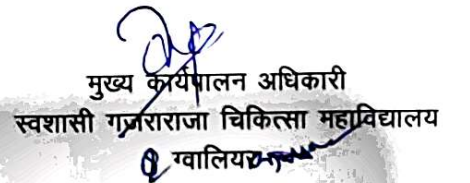 मुख्य कार्यपालन अधिकारी
स्वशासी गजराराजा चिकित्सा महाविद्यालय
ग्वालियर